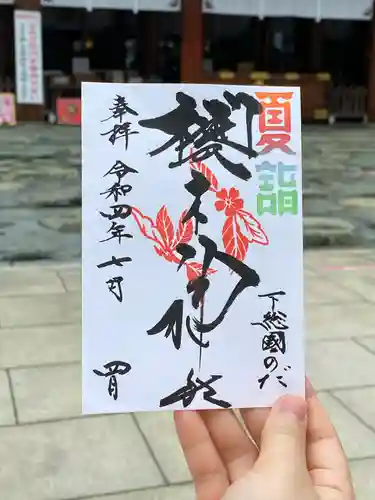 夏詣
下総國のだ
櫻木神社
奉拝 令和四年七月 四日